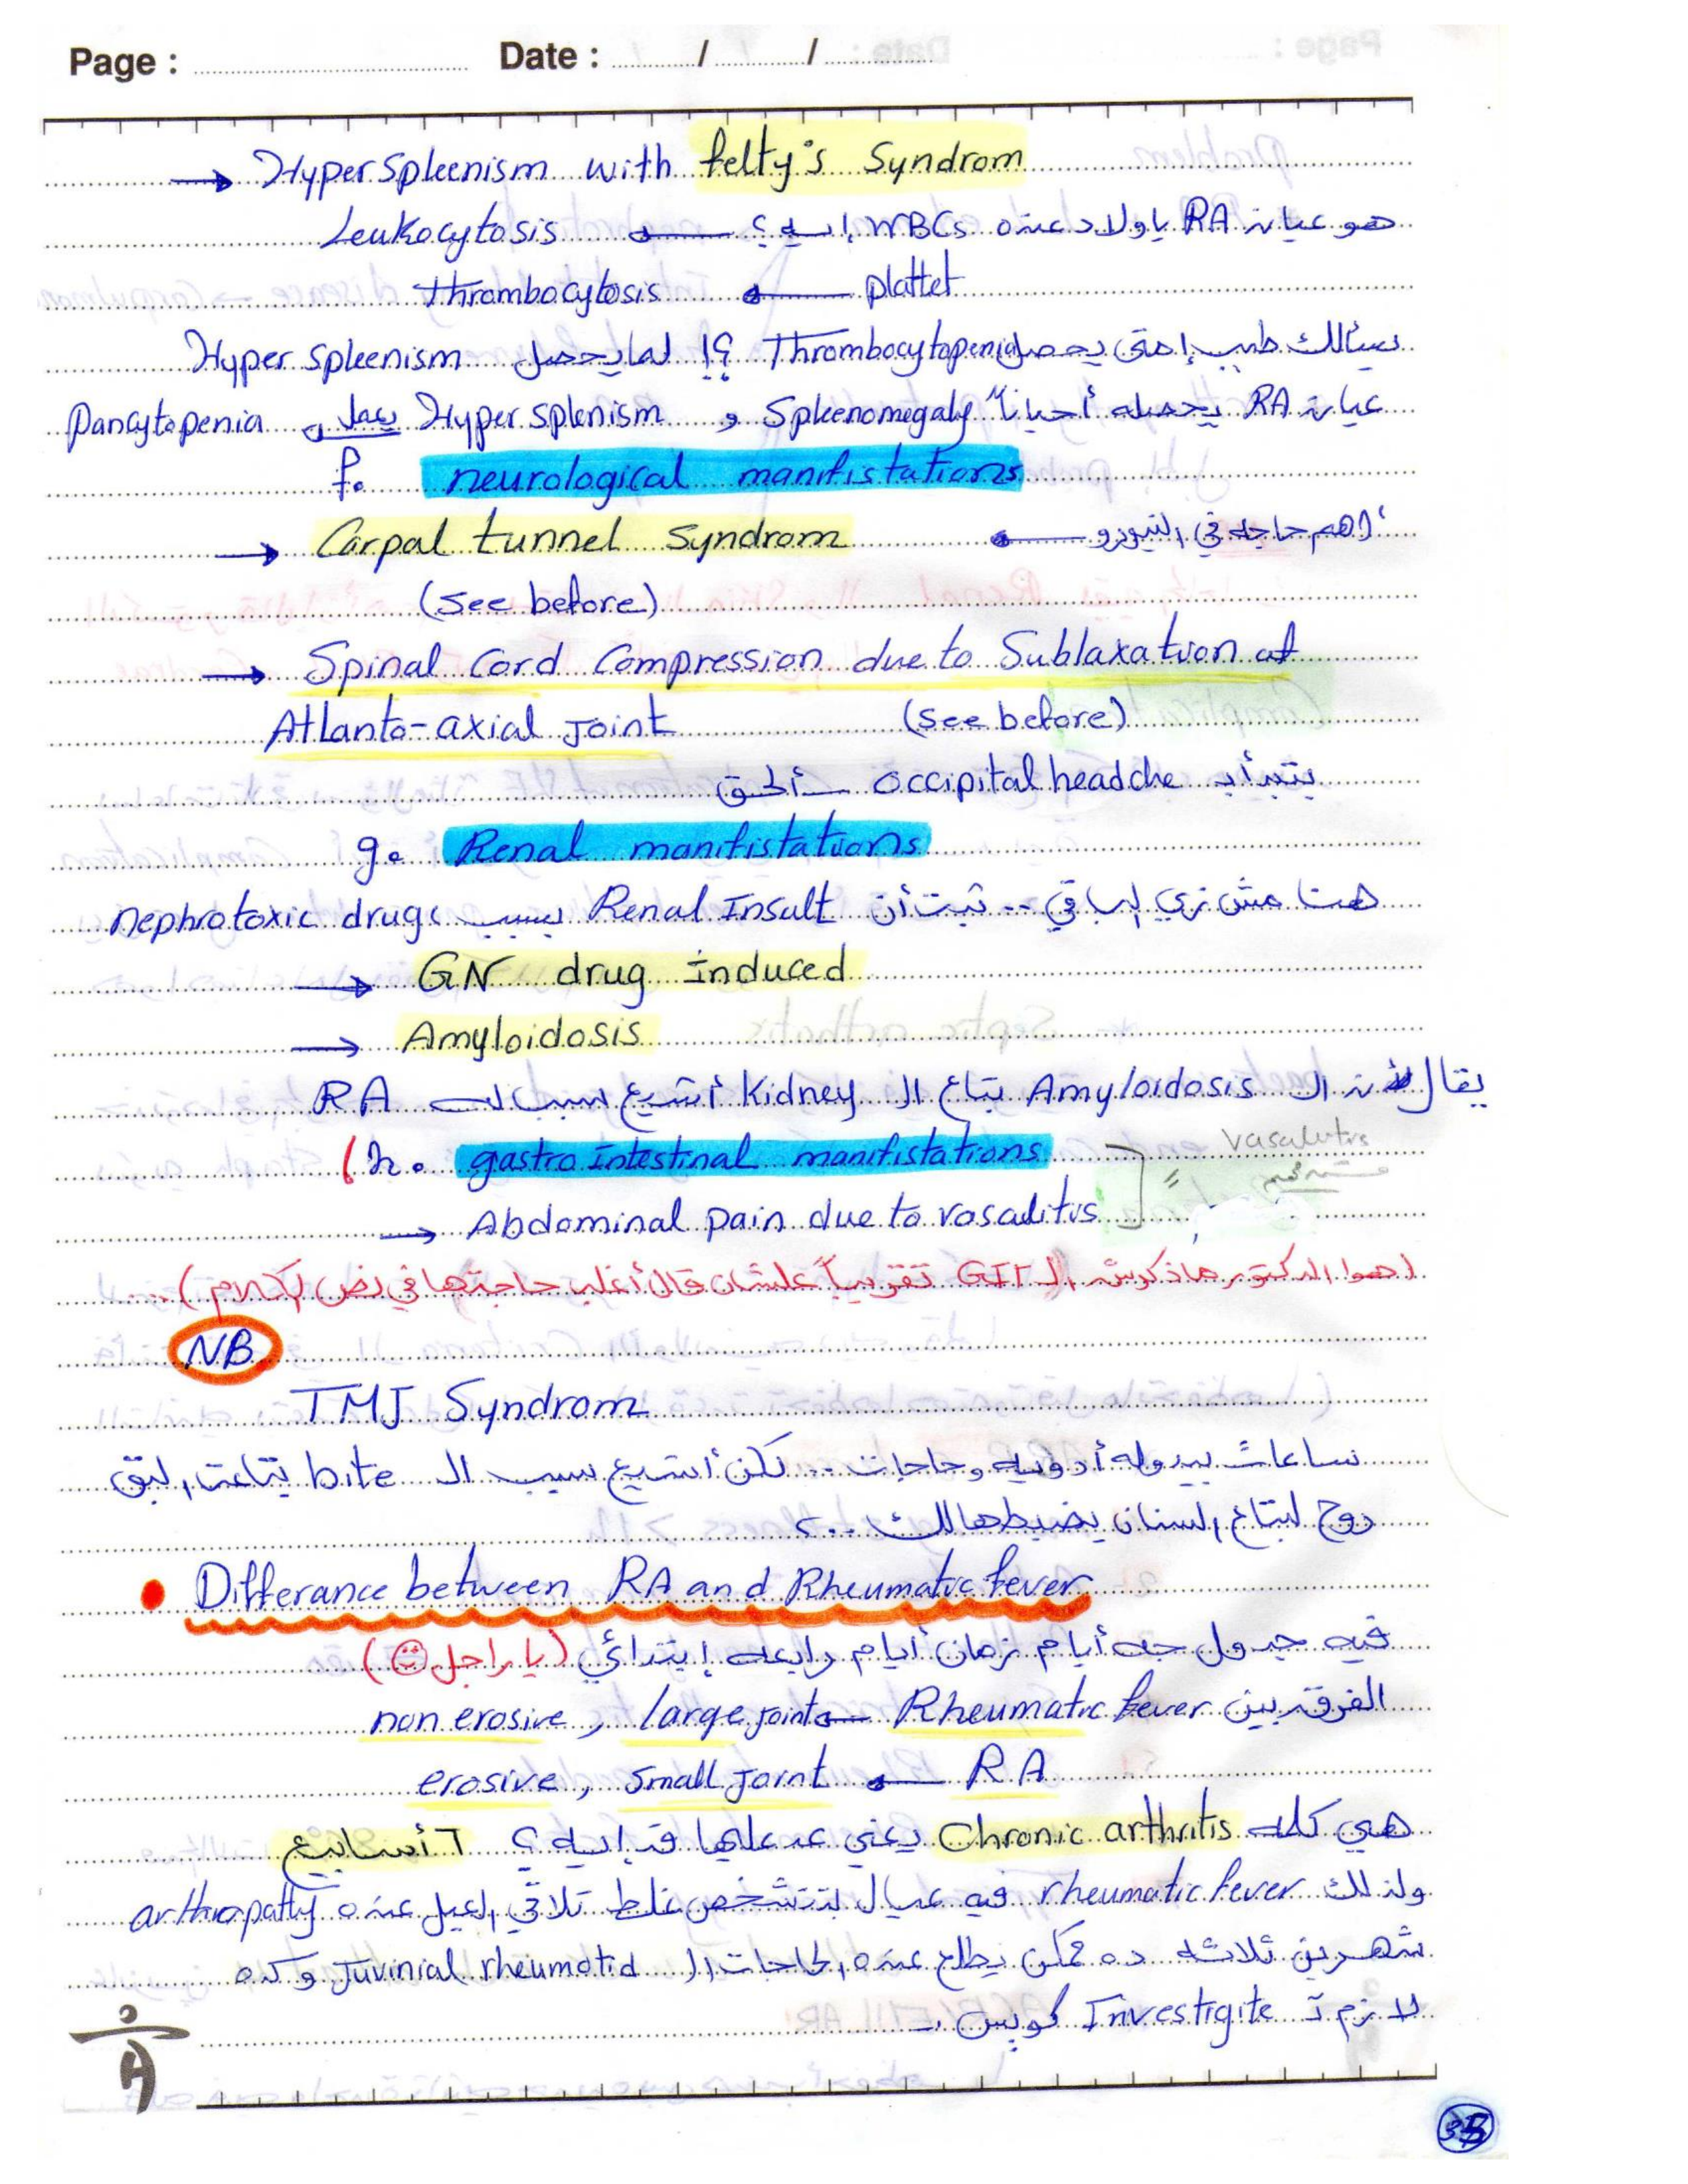 Page : Date : / /
→ Hyper spleenism with felty's Syndrom
هو عيان RA ياولاد عنده WBCs إيه؟ ← Leukocytosis
plattet ← thrombocytosis
يسألك طيب إمتى يحصل Thrombocytopenia ؟! لما يحصل Hyper spleenism
عيان RA يحصله أحياناً Spleenomegaly و Hyper splenism يعمل Pancytopenia
f. neurological manifistations
أهم حاجه في النيورو ← Carpal tunnel Syndrom
(see before)
→ Spinal Cord Compression due to Sublaxation at
Atlanto-axial Joint (see before)
يتبدأ بـ occipital headche
g. Renal manifistations
هنا مش زي الباقي .. ثبت أن Renal Insult بسبب nephrotoxic drugs
→ GN drug induced
→ Amyloidosis
يقال أن الـ Amyloidosis بتاع الـ Kidney أشيع سبب له RA
h. gastro intestinal manifistations
vasalutis
→ Abdominal pain due to vasalitis
(هوا الدكتور ماذكرش الـ GIT تقريباً علشان قال أغلب حاجتها في نص الكلام)
NB
TMJ Syndrom
ساعات بيدوله أدويه وحاجات .. لكن أشيع سبب الـ bite بتاعت البق
روح لبتاع السنان يضبطهالك ..
• Differance between RA and Rheumatic fever
فيه جدول جه أيام زمان أيام رابعه إبتدائي (ياراجل ☺)
الفرق بين Rheumatic fever ← large joint , non erosive
RA ← Small Joint , erosive
هي كلمه Chronic arthritis يعني عد عليها قد إيه؟ ٦ أسابيع
ولذلك rheumatic fever فيه عيال بتتشخص غلط تلاقي العيل عنده arthropatly
شهرين تلاته ده ممكن يطلع عنده الحاجات الـ Juvinial rheumotid وكده
لازم تـ Investigite كويس
35